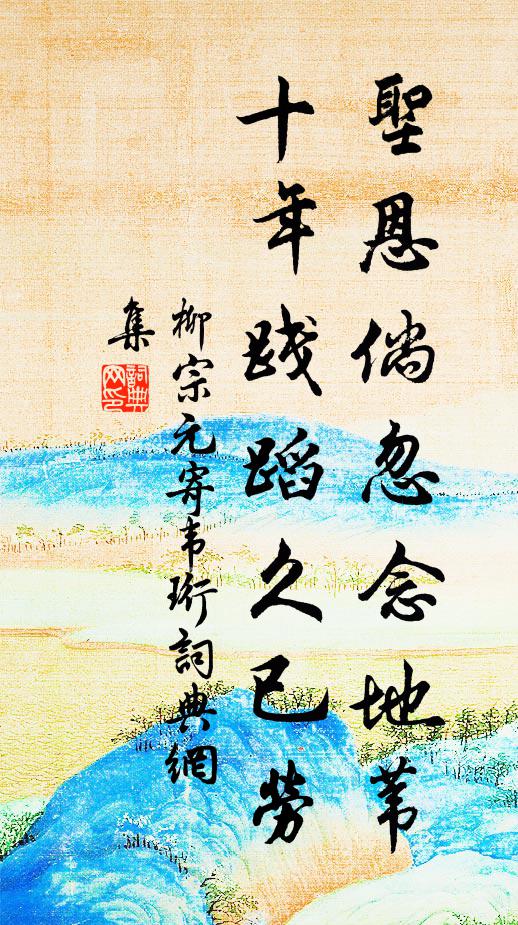 聖恩倘忽念地苇
十年践蹈久已勞
柳宗元寄韦珩詞典網
集
詞典網印